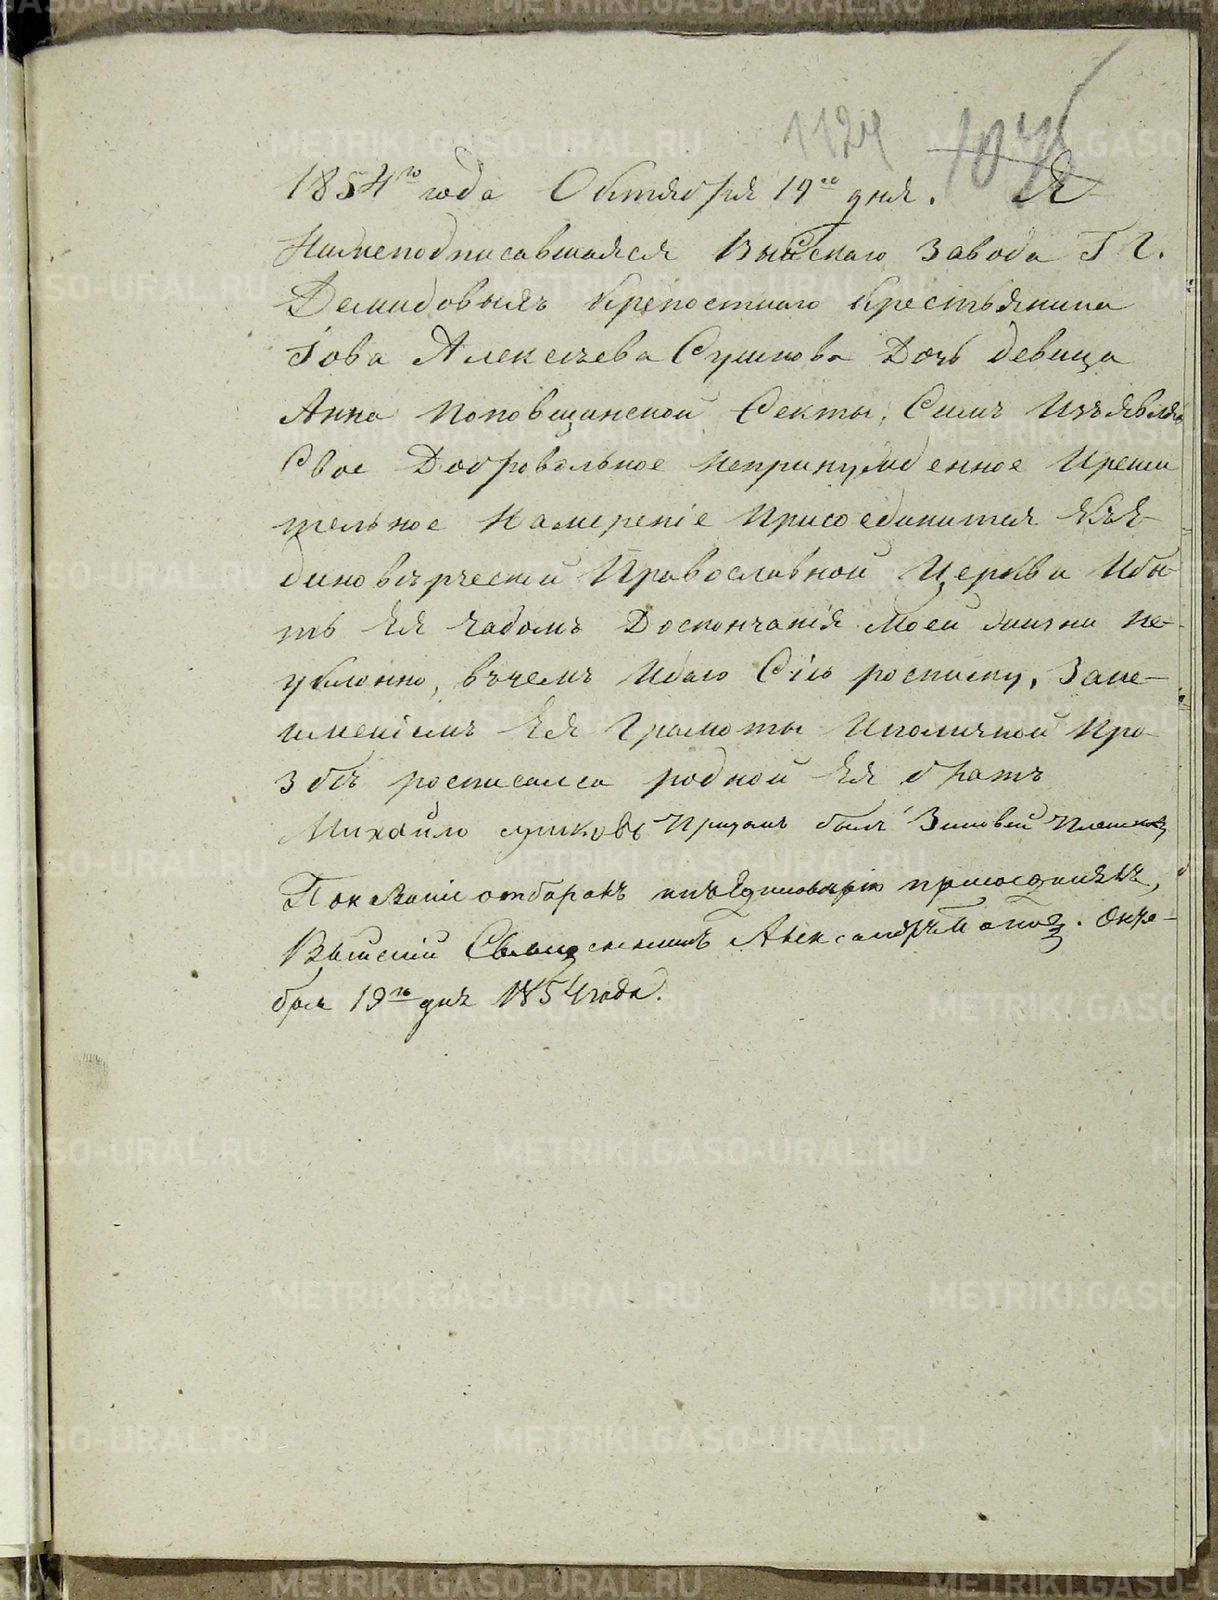 1124
1854го года Октября 19го дня. Я
Нижеподписавшаяся Выйскаго Завода Г. Г.
Демидовыхъ Крепостнаго Крестьянина
Іова Алексѣева Сушкова Дочь девица
Анна Поповщинской Секты, Симъ Изъявляю
Свое Добровольное Непринужденное Ирешы
тельное Намереніе Присоединится КъЕ-
диноверческой Православной Церкви Ибы-
ть Ея Чадомъ Доскончанія Моей Жизни Не-
уклонно, вчемъ Идаю Сію росписку, Зане-
именіемъ Ея Грамоты Иполичной Про-
збѣ росписался родной Ея братъ
Михайло сушковъ Присемъ былъ Зиновей
Показаніе отбиралъ икъ Единоверію присоединилъ,
Выйскій Священникъ Александръ Октя-
бря 19го дня 1854 года.
METRIKI.GASO-URAL.RU